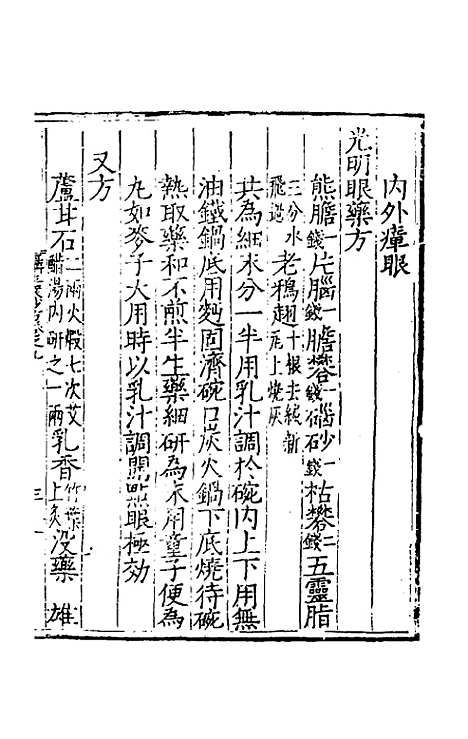 內外瘴眼
光明眼藥方
熊膽一錢片腦一錢膽礬一錢硇砂一錢枯礬二錢五靈脂
三分水飛過老鴉翅十根去梗新瓦上燒灰
共為細末分一半用乳汁調於碗內上下用無
油鐵鍋底用麪固濟碗口炭火鍋下底燒待碗
熱取藥和不煎半生藥細研為末用童子便為
丸如麥子大用時以乳汁調開點眼極効
又方
蘆甘石二兩火煅七次艾醋湯內研之一兩乳香竹葉上炙沒藥 雄